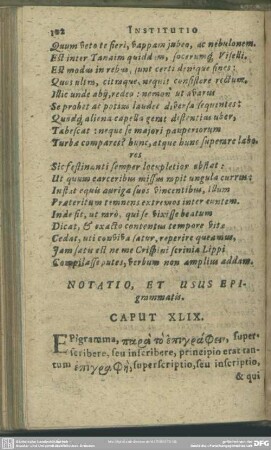 102 INSTITUTIO
Quum veto te fieri, vappam jubeo, ac nebulonem.
Est inter Tanaim quiddam, socerumq́; Viselli.
Est modus in rebus, sunt certi denique fines:
Quos ultra, citraque nequit consistere rectum.
Illuc unde abij, redeo: nemon' ut avarus
Se probet ac potius laudet diversa sequentes:
Quodq́; aliena capella gerat distentius uber,
Tabescat: neque se majori pauperiorum
Turbæ comparet? hunc, atque hunc superare labo-
ret
Sic festinanti semper locupletior obstat:
Ut quum carceribus missos rapit ungula currus,
Instat equis auriga suos vincentibus, illum
Præteritum temnens extremos inter euntem.
Inde fit, ut raro, qui se vixisse beatum
Dicat, & exacto contentus tempore vita
Cedat, uti conviva satur, reperire queamus.
Jam satis est ne me Crispini scrinia Lippi
Compilasse putes, verbum non amplius addam.
NOTATIO, ET USUS EPI-
grammatis.
CAPUT XLIX.
EPigramma, παρὰ τὸ ἐπιγράφειν, super-
scribere, seu inscribere, principio erat tan-
tum ἐπιγραφὴ, superscriptio, seu inscriptio,
& qui